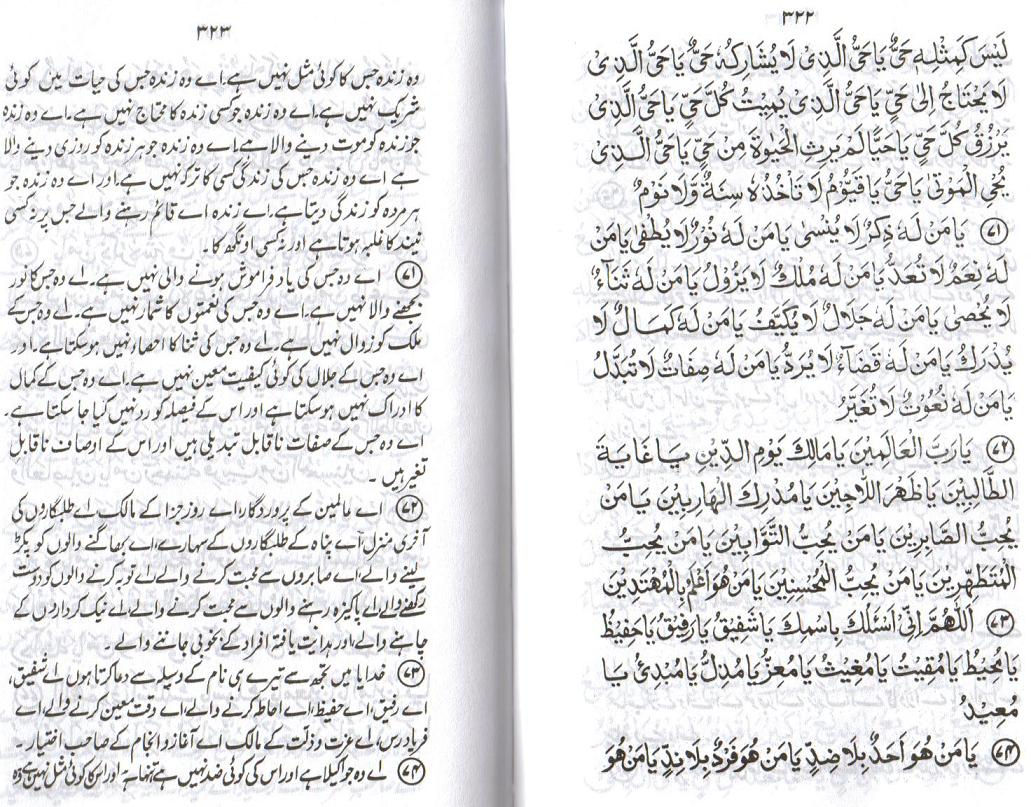 ۳۲۲
لَيْسَ كَمِثْلِهٖ حَيٌّ يَا حَيُّ الَّذِىْ لَا يُشَارِكُهٗ حَيٌّ يَا حَيُّ الَّذِى
لَا يَحْتَاجُ اِلٰى حَيٍّ يَا حَيُّ الَّذِىْ يُمِيْتُ كُلَّ حَيٍّ يَا حَيُّ الَّذِىْ
يَرْزُقُ كُلَّ حَيٍّ يَا حَيًّا لَمْ يَرِثِ الْحَيٰوةَ مِنْ حَيٍّ يَا حَيُّ الَّذِىْ
يُحْيِ الْمَوْتٰى يَا حَيُّ يَا قَيُّوْمُ لَا تَاْخُذُهٗ سِنَةٌ وَّلَا نَوْمٌ
۷۱ يَا مَنْ لَهٗ ذِكْرٌ لَا يُنْسٰى يَا مَنْ لَهٗ نُوْرٌ لَا يُطْفٰى يَا مَنْ
لَهٗ نِعَمٌ لَا تُعَدُّ يَا مَنْ لَهٗ مُلْكٌ لَا يَزُوْلُ يَا مَنْ لَهٗ ثَنَاءٌ
لَا يُحْصٰى يَا مَنْ لَهٗ جَلَالٌ لَا يُكَيَّفُ يَا مَنْ لَهٗ كَمَالٌ لَا
يُدْرَكُ يَا مَنْ لَهٗ قَضَآءٌ لَا يُرَدُّ يَا مَنْ لَهٗ صِفَاتٌ لَا تُبَدَّلُ
يَا مَنْ لَهٗ نُعُوْتٌ لَا تُغَيَّرُ
۷۲ يَا رَبَّ الْعَالَمِيْنَ يَا مَالِكَ يَوْمِ الدِّيْنِ يَا غَايَةَ
الطَّالِبِيْنَ يَا ظَهْرَ اللَّاجِيْنَ يَا مُدْرِكَ الْهَارِبِيْنَ يَا مَنْ
يُحِبُّ الصَّابِرِيْنَ يَا مَنْ يُحِبُّ التَّوَّابِيْنَ يَا مَنْ يُحِبُّ
الْمُتَطَهِّرِيْنَ يَا مَنْ يُحِبُّ الْمُحْسِنِيْنَ يَا مَنْ هُوَ اَعْلَمُ بِالْمُهْتَدِيْنَ
۷۳ اَللّٰهُمَّ اِنِّىْ اَسْئَلُكَ بِاسْمِكَ يَا شَفِيْقُ يَا رَفِيْقُ يَا حَفِيْظُ
يَا مُحِيْطُ يَا مُقِيْتُ يَا مُغِيْثُ يَا مُعِزُّ يَا مُذِلُّ يَا مُبْدِئُ يَا
مُعِيْدُ
۷۴ يَا مَنْ هُوَ اَحَدٌ بِلَا ضِدٍّ يَا مَنْ هُوَ فَرْدٌ بِلَا نِدٍّ يَا مَنْ هُوَ
۳۲۳
وہ زندہ جس کا کوئی مثل نہیں ہے اے وہ زندہ جس کی حیات میں کوئی
شریک نہیں ہے۔ اے وہ زندہ جو کسی زندہ کا محتاج نہیں ہے۔ اے وہ زندہ
جو زندہ کو موت دینے والا ہے۔ اے وہ زندہ جو ہر زندہ کو روزی دینے والا
ہے اے وہ زندہ جس کی زندگی کسی کا ترکہ نہیں ہے۔ اور اے وہ زندہ جو
ہر مردہ کو زندگی دیتا ہے۔ اے زندہ اے قائم رہنے والے جس پر نہ کسی
نیند کا غلبہ ہوتا ہے اور نہ کسی اونگھ کا۔
۷۱ اے وہ جس کی یاد فراموش ہونے والی نہیں ہے۔ اے وہ جس کا نور
بجھنے والا نہیں ہے۔ اے وہ جس کی نعمتوں کا شمار نہیں ہے۔ اے وہ جس کے
ملک کو زوال نہیں ہے۔ اے وہ جس کی ثنا کا احصاء نہیں ہو سکتا ہے۔ اور
اے وہ جس کے جلال کی کوئی کیفیت معین نہیں ہے۔ اے وہ جس کے کمال
کا ادراک نہیں ہو سکتا ہے اور اس کے فیصلہ کو رد نہیں کیا جا سکتا ہے۔
اے وہ جس کے صفات ناقابل تبدیلی ہیں اور اس کے اوصاف ناقابل
تغیر ہیں۔
۷۲ اے عالمین کے پروردگار اے روز جزا کے مالک اے طلبگاروں کی
آخری منزل اے پناہ کے طلبگاروں کے سہارے، اے بھاگنے والوں کو پکڑ
لینے والے، اے صابروں سے محبت کرنے والے اے توبہ کرنے والوں کو دوست
رکھنے والے اے پاکیزہ رہنے والوں سے محبت کرنے والے، اے نیک کرداروں کے
چاہنے والے، اور ہدایت یافتہ افراد کے بخوبی جاننے والے۔
۷۳ خدایا میں تجھ سے تیرے ہی نام کے وسیلہ سے دعا کرتا ہوں اے شفیق،
اے رفیق، اے حفیظ، اے احاطہ کرنے والے، اے وقت معین کرنے والے، اے
فریادرس، اے عزت و ذلت کے مالک اے آغاز و انجام کے صاحب اختیار۔
۷۴ اے وہ جو اکیلا ہے اور اس کی کوئی ضد نہیں ہے تنہا ہے اور اس کا کوئی مثل نہیں ہے وہ